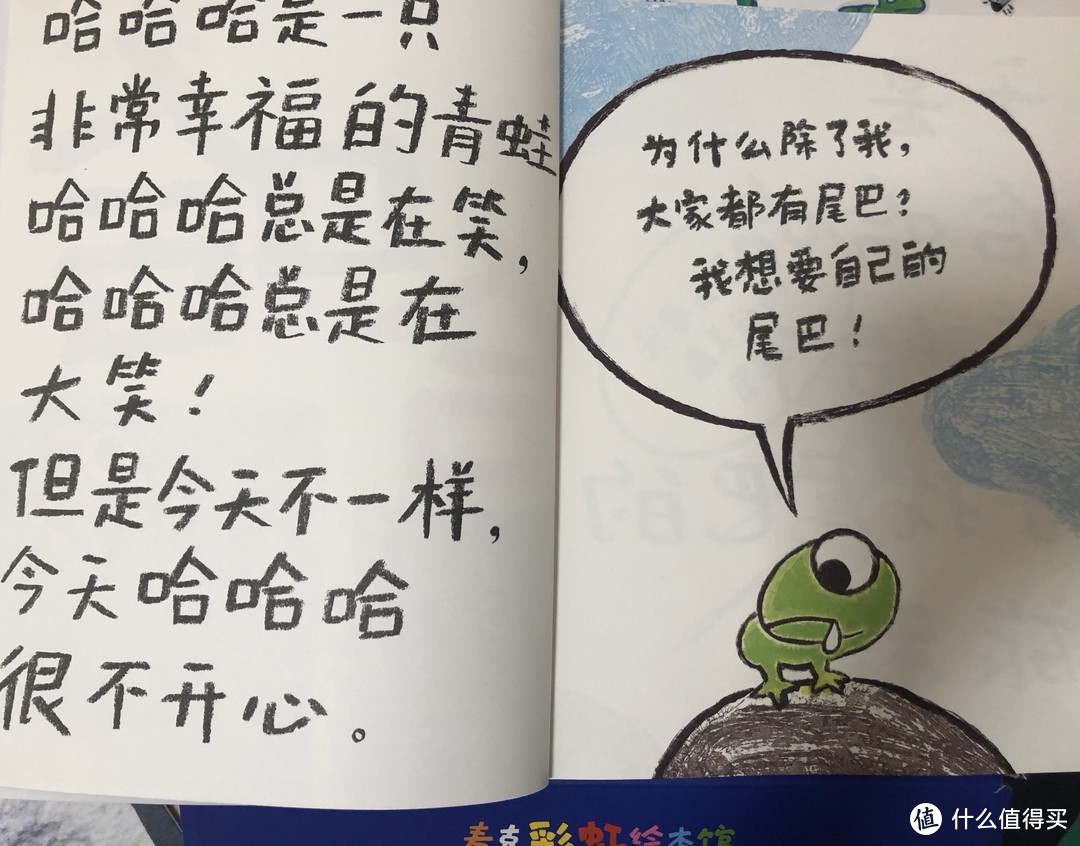 哈哈哈是一只
非常幸福的青蛙
哈哈哈总是在笑，
哈哈哈总是在
大笑！
但是今天不一样，
今天哈哈哈
很不开心。
为什么除了我，
大家都有尾巴？
我想要自己的
尾巴！
麦克彩虹绘本馆
值 什么值得买